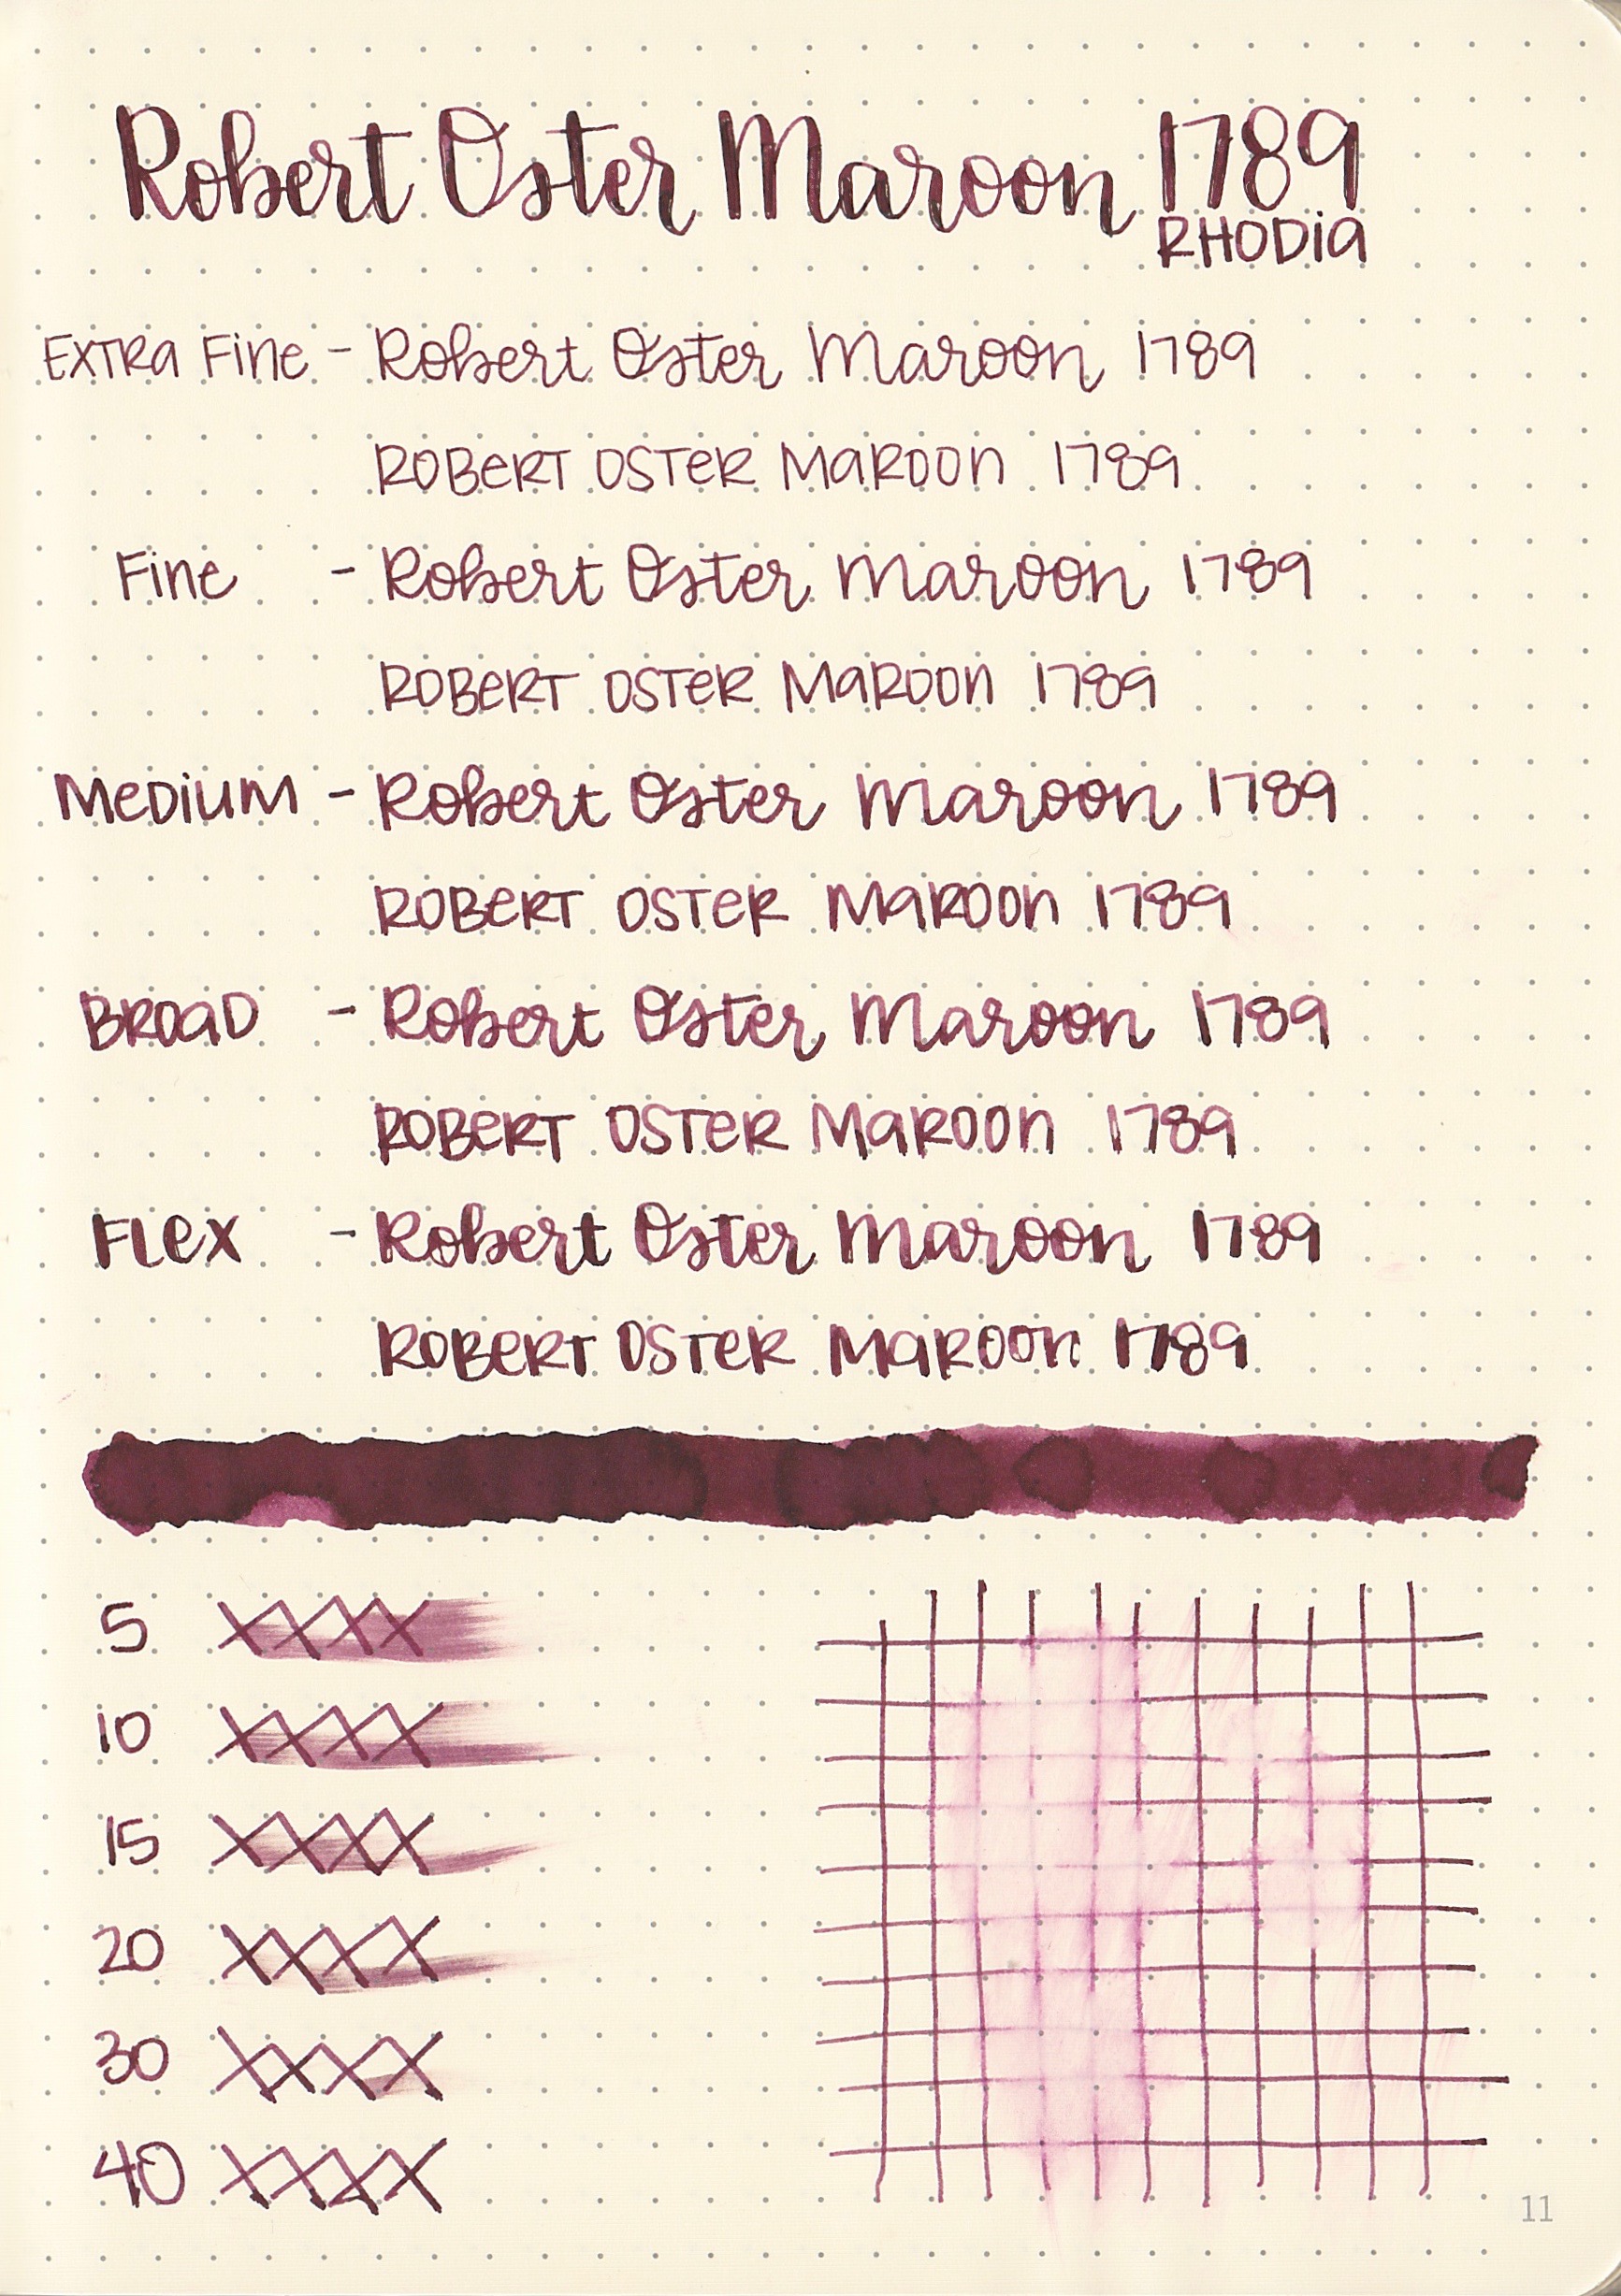 Robert Oster Maroon 1789
RHODIA
EXTRA FINE - Robert Oster Maroon 1789
ROBERT OSTER MAROON 1789
FINE - Robert Oster Maroon 1789
ROBERT OSTER MAROON 1789
MEDIUM - Robert Oster Maroon 1789
ROBERT OSTER MAROON 1789
BROAD - Robert Oster Maroon 1789
ROBERT OSTER MAROON 1789
FLEX - Robert Oster Maroon 1789
ROBERT OSTER MAROON 1789
5 XXXX
10 XXXX
15 XXXX
20 XXXX
30 XXXX
40 XXXX
11